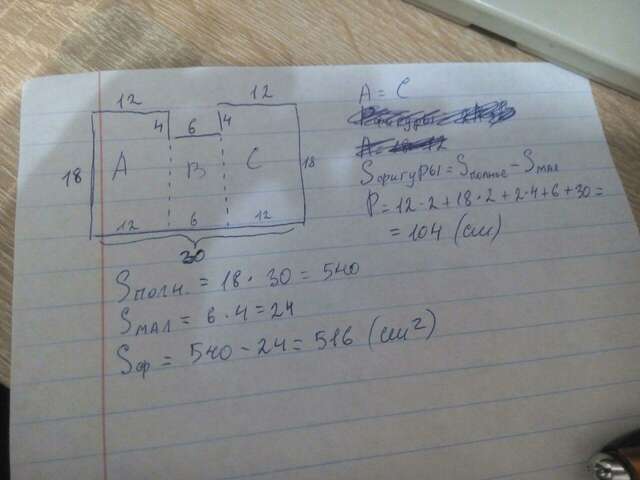 12
12
4
6
4
18
A
B
C
18
12
6
12
30
A = C
Sфигуры = Sполное - Sмал
P = 12·2 + 18·2 + 2·4 + 6 + 30 =
= 104 (см)
Sполн. = 18 · 30 = 540
Sмал = 6 · 4 = 24
Sф = 540 - 24 = 516 (см²)